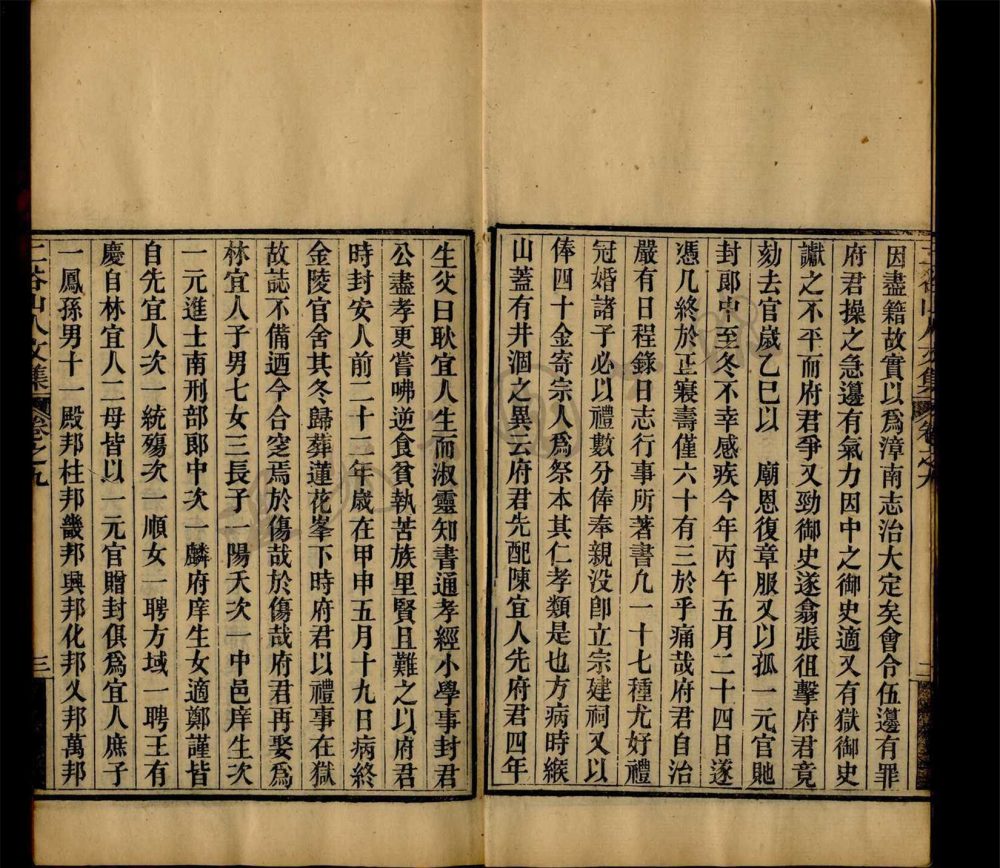 因盡籍故實以爲漳南志治大定矣會令伍邊有罪
府君操之急邊有氣力因中之御史適又有獄御史
讞之不平而府君爭又勁御史遂翕張徂擊府君竟
劾去官歲乙巳以 廟恩復章服又以孤一元官貤
封郎中至冬不幸感疾今年丙午五月二十四日遂
憑几終於正寢壽僅六十有三於乎痛哉府君自治
嚴有日程錄日志行事所著書凢一十七種尤好禮
冠婚諸子必以禮數分俸奉親没卽立宗建祠又以
俸四十金寄宗人爲祭本其仁孝類是也方病時緱
山蓋有井涸之異云府君先配陳宜人先府君四年
生父曰耿宜人生而淑靈知書通孝經小學事封君
公盡孝更嘗咈逆食貧執苦族里賢且難之以府君
時封安人前二十二年歲在甲申五月十九日病終
金陵官舍其冬歸葬蓮花峯下時府君以禮事在獄
故誌不備迺今合窆焉於傷哉於傷哉府君再娶爲
林宜人子男七女三長子一陽夭次一中邑庠生次
一元進士南刑部郎中次一麟府庠生女適鄭謹皆
自先宜人次一統殤次一順女一聘方域一聘王有
慶自林宜人二母皆以一元官贈封俱爲宜人庶子
一鳳孫男十一殿邦柱邦畿邦興邦化邦乂邦萬邦
二谷山人文集
卷之九
三